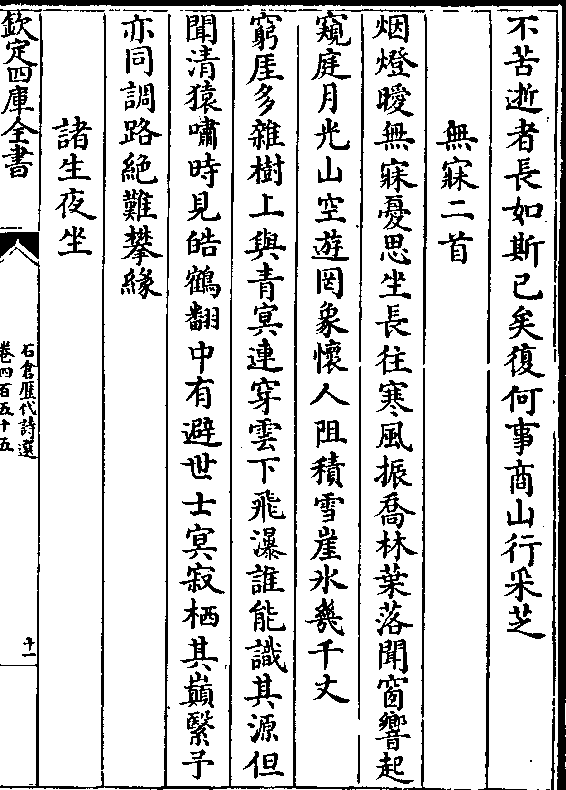 不苦逝者長如斯已矣復何事商山行采芝
無寐二首
烟燈曖無寐憂思坐長往寒風振喬林葉落聞窗響起
窺庭月光山空遊罔象懷人阻積雪崖氷幾千丈
窮厓多雜樹上與青冥連穿雲下飛瀑誰能識其源但
聞清猿嘯時見皓鶴翻中有避世士冥寂栖其巔繄予
亦同調路絶難攀緣
諸生夜坐
欽定四庫全書
石倉歷代詩選
卷四百五十五
十一